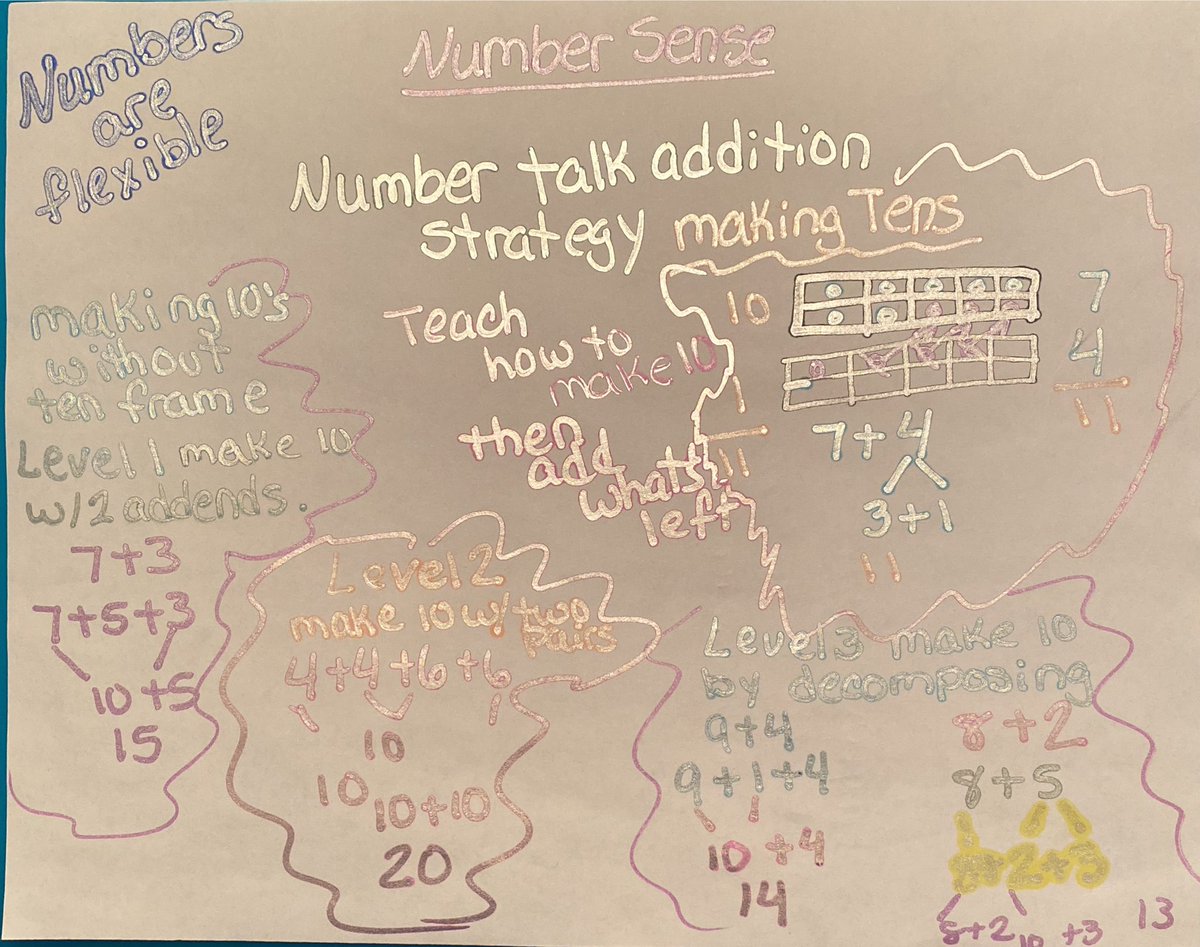 Numbers
are
flexible
Number Sense
Number talk addition
strategy making Tens
Teach
how to
make 10
then
add
whats
left
10
1
11
7
4
11
7+4
3+1
11
making 10's
without
ten frame
Level 1 make 10
w/2 addends.
7+3
7+5+3
10+5
15
Level 2
make 10 w/ two
Pairs
4+4+6+6
10
10
10+10
20
Level 3 make 10
by decomposing
9+4
9+1+4
10+4
14
8+2
8+5
+2+3
8+2
10
+3
13